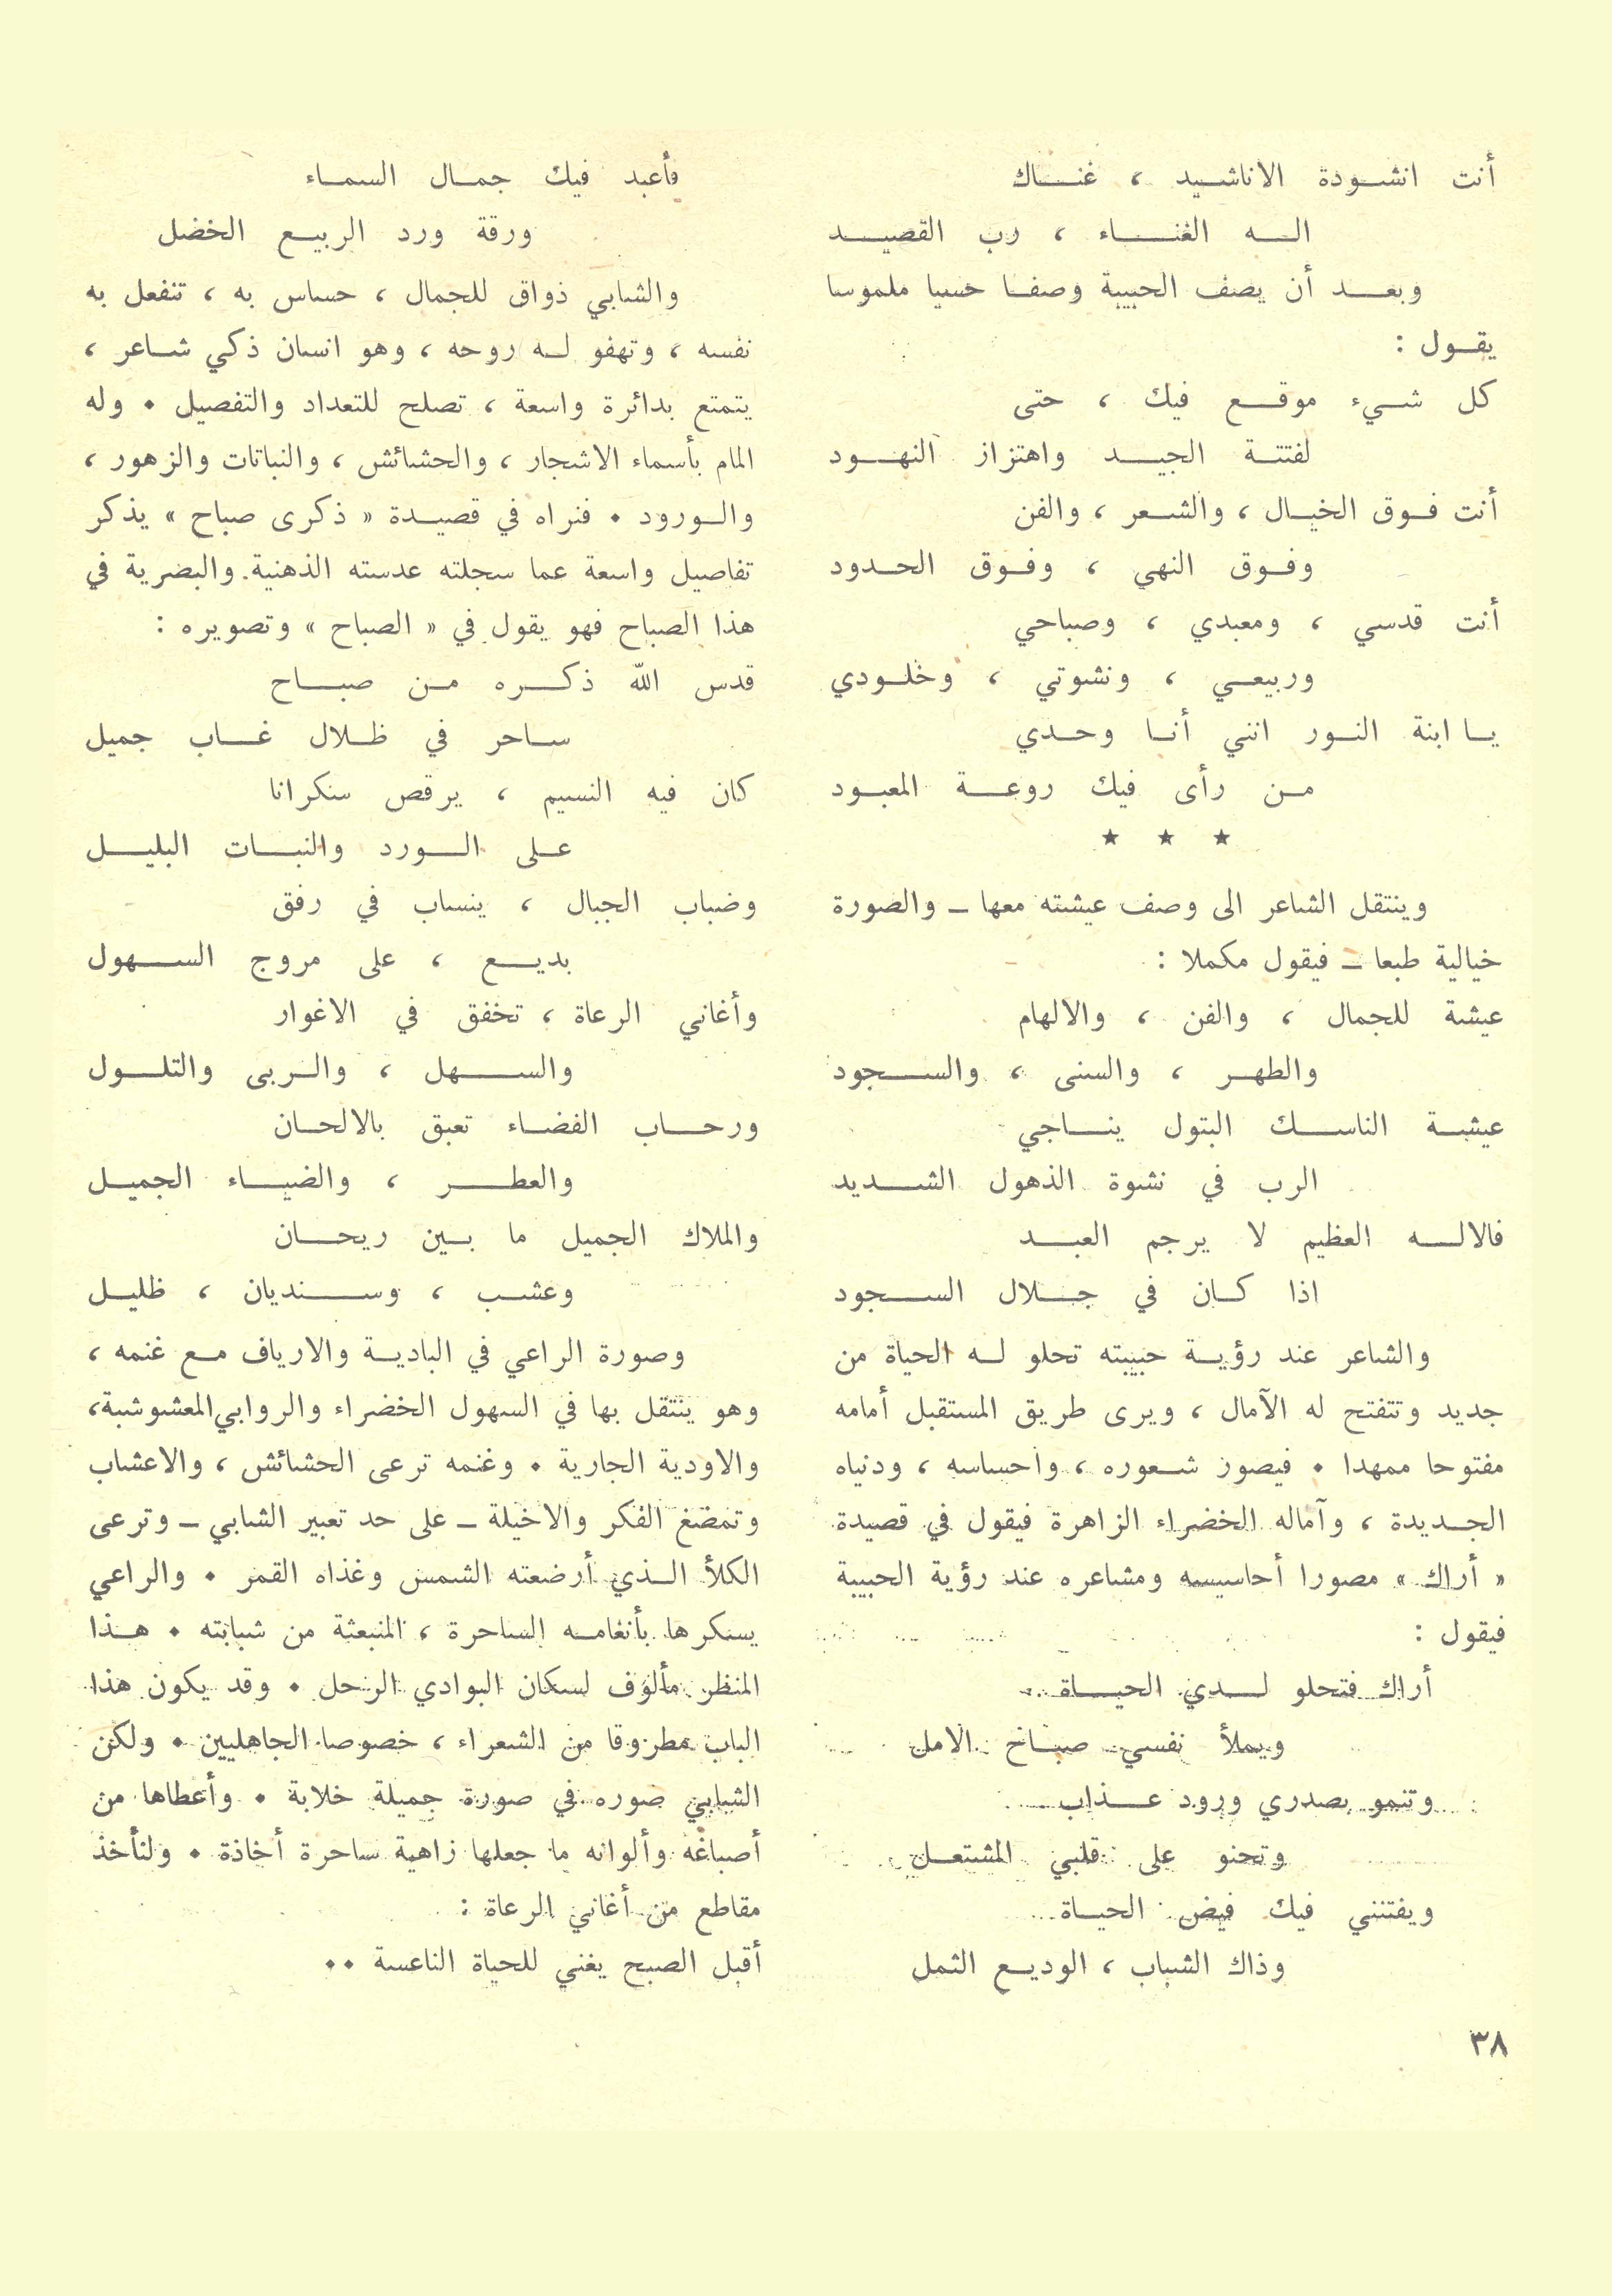 أنت انشودة الاناشيد ، غناك
اله الغناء ، رب القصيد
وبعد أن يصف الحبيبة وصفا حسيا ملموسا
يقول :
كل شيء موقع فيك ، حتى
لفتتة الجيد واهتزاز النهود
أنت فوق الخيال ، والشعر ، والفن
وفوق النهي ، وفوق الحدود
أنت قدسي ، ومعبدي ، وصباحي
وربيعي ، ونشوتي ، وخلودي
يا ابنة النور انني أنا وحدي
من رأى فيك روعة المعبود
★ ★ ★
وينتقل الشاعر الى وصف عيشته معها ــ والصورة
خيالية طبعا ــ فيقول مكملا :
عيشة للجمال ، والفن ، والالهام
والطهر ، والسنى ، والسجود
عيشة الناسك البتول يناجي
الرب في نشوة الذهول الشديد
فالاله العظيم لا يرجم العبد
اذا كان في جلال السجود
والشاعر عند رؤية حبيبته تحلو له الحياة من
جديد وتتفتح له الآمال ، ويرى طريق المستقبل أمامه
مفتوحا ممهدا ٠ فيصور شعوره ، واحساسه ، ودنياه
الجديدة ، وآماله الخضراء الزاهرة فيقول في قصيدة
« أراك » مصورا أحاسيسه ومشاعره عند رؤية الحبيبة
فيقول :
أراك فتحلو لدي الحياة
ويملأ نفسي صباح الامل
وتنمو بصدري ورود عذاب
وتحنو على قلبي المشتعل
ويفتنني فيك فيض الحياة
وذاك الشباب ، الوديع الثمل
فأعبد فيك جمال السماء
ورقة ورد الربيع الخضل
والشابي ذواق للجمال ، حساس به ، تنفعل به
نفسه ، وتهفو له روحه ، وهو انسان ذكي شاعر ،
يتمتع بدائرة واسعة ، تصلح للتعداد والتفصيل ٠ وله
المام بأسماء الاشجار ، والحشائش ، والنباتات والزهور ،
والورود ٠ فنراه في قصيدة « ذكرى صباح » يذكر
تفاصيل واسعة عما سجلته عدسته الذهنية والبصرية في
هذا الصباح فهو يقول في « الصباح » وتصويره :
قدس الله ذكره من صباح
ساحر في ظلال غاب جميل
كان فيه النسيم ، يرقص سكرانا
على الورد والنبات البليل
وضباب الجبال ، ينساب في رفق
بديع ، على مروج السهول
وأغاني الرعاة ، تخفق في الاغوار
والسهل ، والربى والتلول
ورحاب الفضاء تعبق بالالحان
والعطر ، والضياء الجميل
والملاك الجميل ما بين ريحان
وعشب ، وسنديان ، ظليل
وصورة الراعي في البادية والارياف مع غنمه ،
وهو ينتقل بها في السهول الخضراء والروابي المعشوشبة،
والاودية الجارية ٠ وغنمه ترعى الحشائش ، والاعشاب
وتمضغ الفكر والاخيلة ــ على حد تعبير الشابي ــ وترعى
الكلأ الذي أرضعته الشمس وغذاه القمر ٠ والراعي
يسكرها بأنغامه الساحرة ، المنبعثة من شبابته ٠ هذا
المنظر مألوف لسكان البوادي الرحل ٠ وقد يكون هذا
الباب مطروقا من الشعراء ، خصوصا الجاهليين ٠ ولكن
الشابي صوره في صورة جميلة خلابة ٠ وأعطاها من
أصباغه وألوانه ما جعلها زاهية ساحرة أخاذة ٠ ولنأخذ
مقاطع من أغاني الرعاة :
أقبل الصبح يغني للحياة الناعسة ٠٠
٣٨